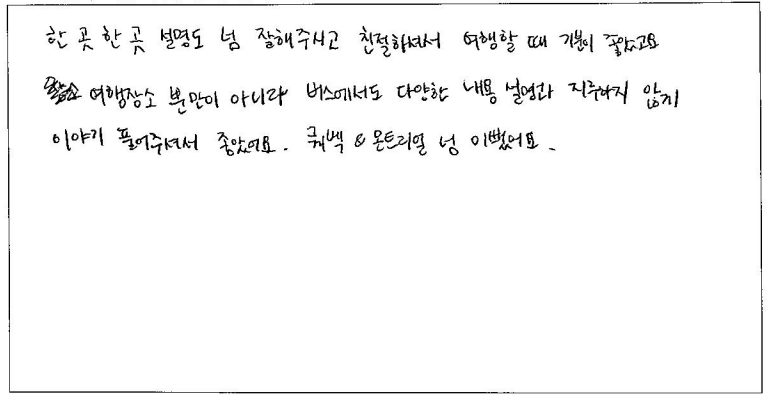 한 곳 한 곳 설명도 넘 잘해주시고 친절하셔서 여행할 때 기분이 좋았고요
여행장소 뿐만이 아니라 버스에서도 다양한 내용 설명과 지루하지 않게
이야기 풀어주셔서 좋았어요. 퀘벡 & 몬트리얼 넘 이뻤어요.